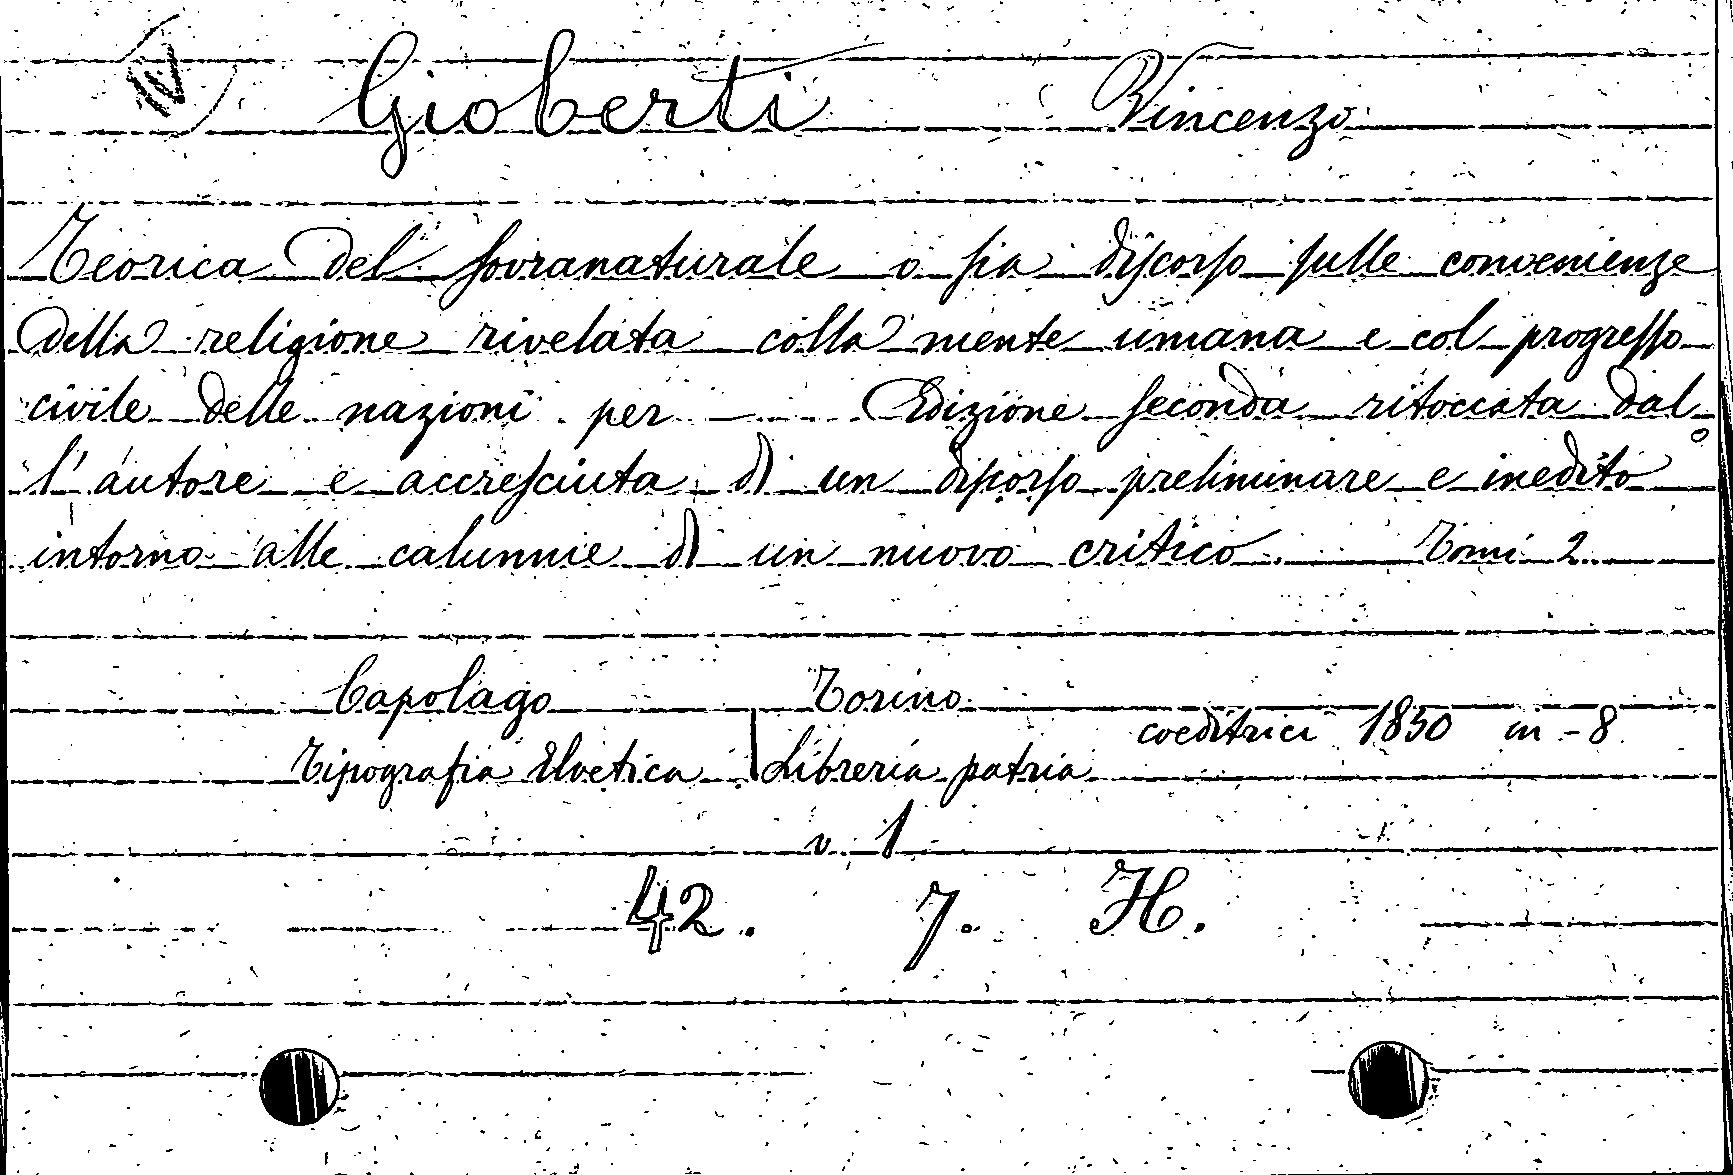 IV
Gioberti Vincenzo
Teorica del sovranaturale o sia discorso sulle convenienze
della religione rivelata colla mente umana e col progresso
civile delle nazioni per — Edizione seconda ritoccata dal
l'autore e accresciuta di un discorso preliminare e inedito
intorno alle calunnie di un nuovo critico. Tomi 2
Capolago Torino
coeditrici 1850 in-8
Tipografia Elvetica | Libreria patria
v. 1
42. 7. H.